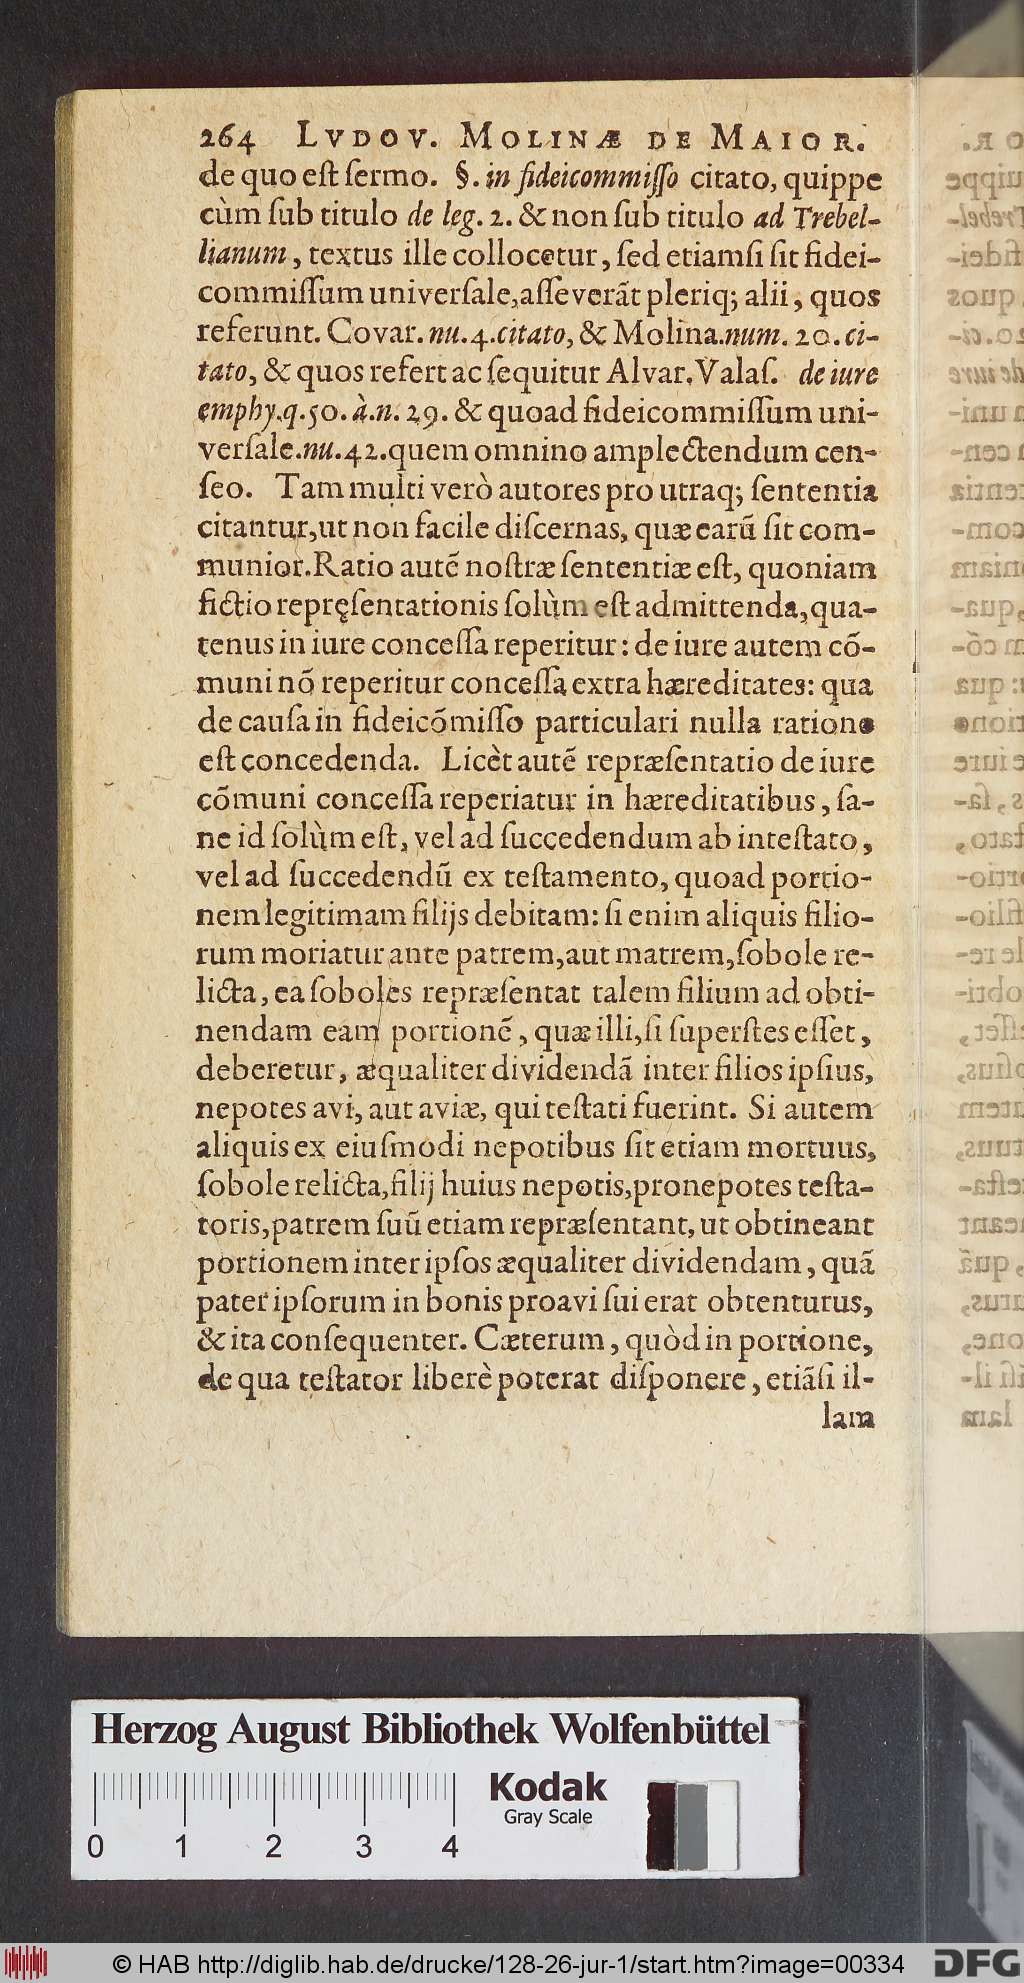 264 LVDOV. MOLINÆ DE MAIOR.
de quo est sermo. §. in fideicommisso citato, quippe
cùm sub titulo de leg. 2. & non sub titulo ad Trebel-
lianum, textus ille collocetur, sed etiamsi sit fidei-
commissum universale, asseverãt pleriq; alii, quos
referunt. Covar. nu. 4. citato, & Molina. num. 20. ci-
tato, & quos refert ac sequitur Alvar. Valas. de iure
emphy. q. 50. à. n. 29. & quoad fideicommissum uni-
versale. nu. 42. quem omnino amplectendum cen-
seo. Tam multi verò autores pro utraq; sententia
citantur, ut non facile discernas, quæ earũ sit com-
munior. Ratio autẽ nostræ sententiæ est, quoniam
fictio repręsentationis solùm est admittenda, qua-
tenus in iure concessa reperitur: de iure autem cõ-
muni nõ reperitur concessa extra hæreditates: qua
de causa in fideicõmisso particulari nulla ratione
est concedenda. Licèt autẽ repræsentatio de iure
cõmuni concessa reperiatur in hæreditatibus, sa-
ne id solùm est, vel ad succedendum ab intestato,
vel ad succedendũ ex testamento, quoad portio-
nem legitimam filijs debitam: si enim aliquis filio-
rum moriatur ante patrem, aut matrem, sobole re-
licta, ea soboles repræsentat talem filium ad obti-
nendam eam portionẽ, quæ illi, si superstes esset,
deberetur, æqualiter dividendã inter filios ipsius,
nepotes avi, aut aviæ, qui testati fuerint. Si autem
aliquis ex eiusmodi nepotibus sit etiam mortuus,
sobole relicta, filij huius nepotis, pronepotes testa-
toris, patrem suũ etiam repræsentant, ut obtineant
portionem inter ipsos æqualiter dividendam, quã
pater ipsorum in bonis proavi sui erat obtenturus,
& ita consequenter. Cæterum, quòd in portione,
de qua testator liberè poterat disponere, etiãsi il-
lam
Herzog August Bibliothek Wolfenbüttel
Kodak
Gray Scale
0 1 2 3 4
© HAB http://diglib.hab.de/drucke/128-26-jur-1/start.htm?image=00334
DFG